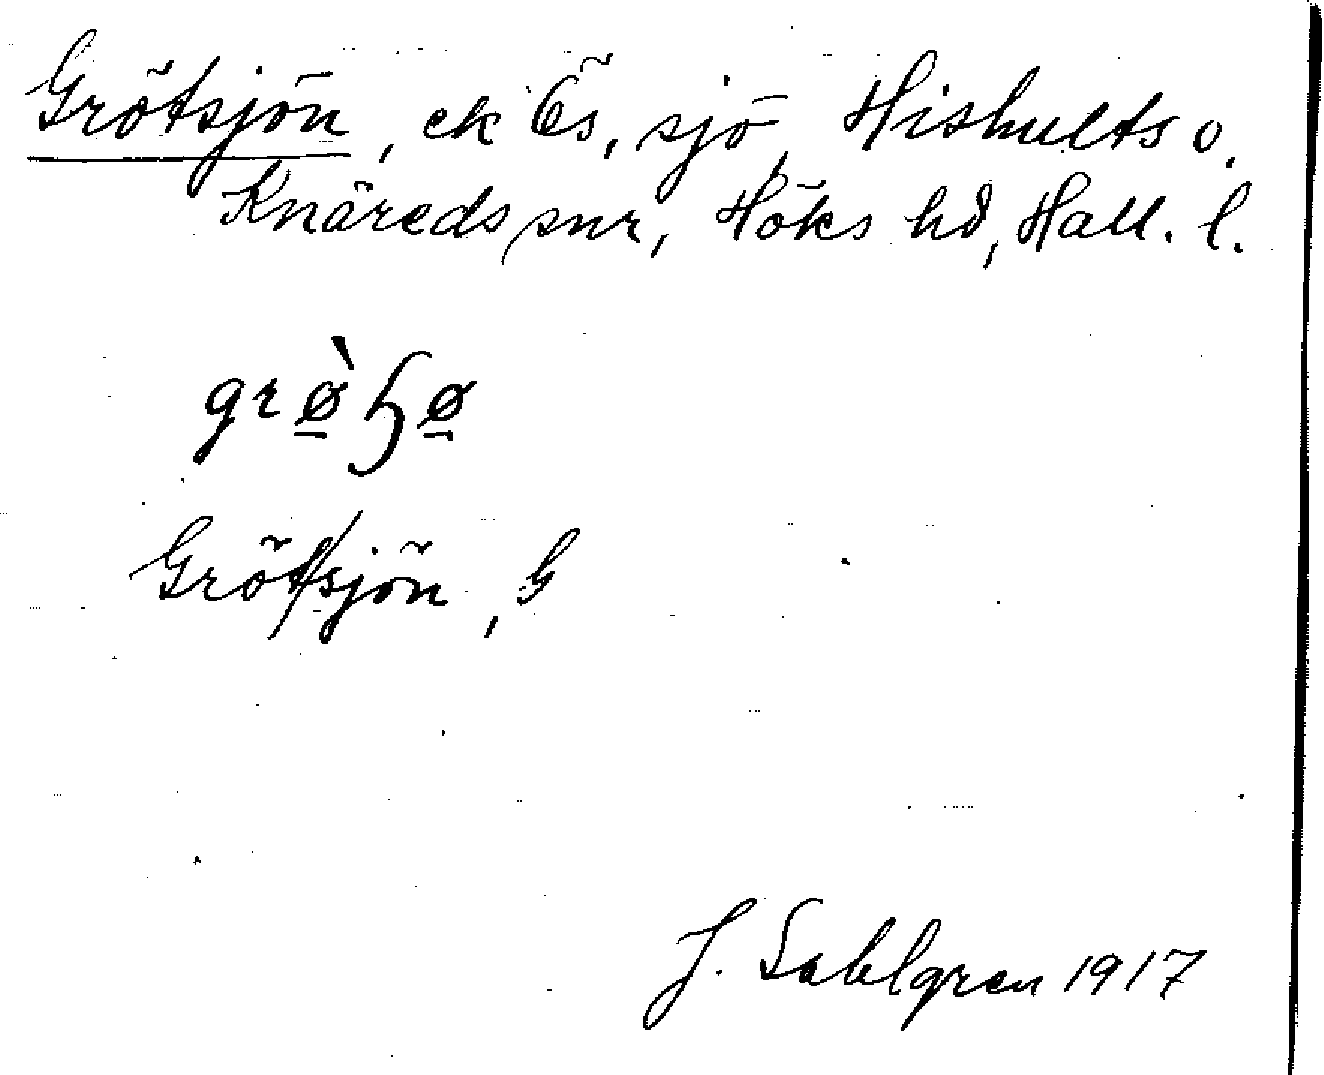 Grötsjön, ek Ös, sjö, Hishults o.
Knäreds snr, Höks hd, Hall. l.
grø̱̀ɧø̱
Gröt/sjön, G
J. Sahlgren 1917